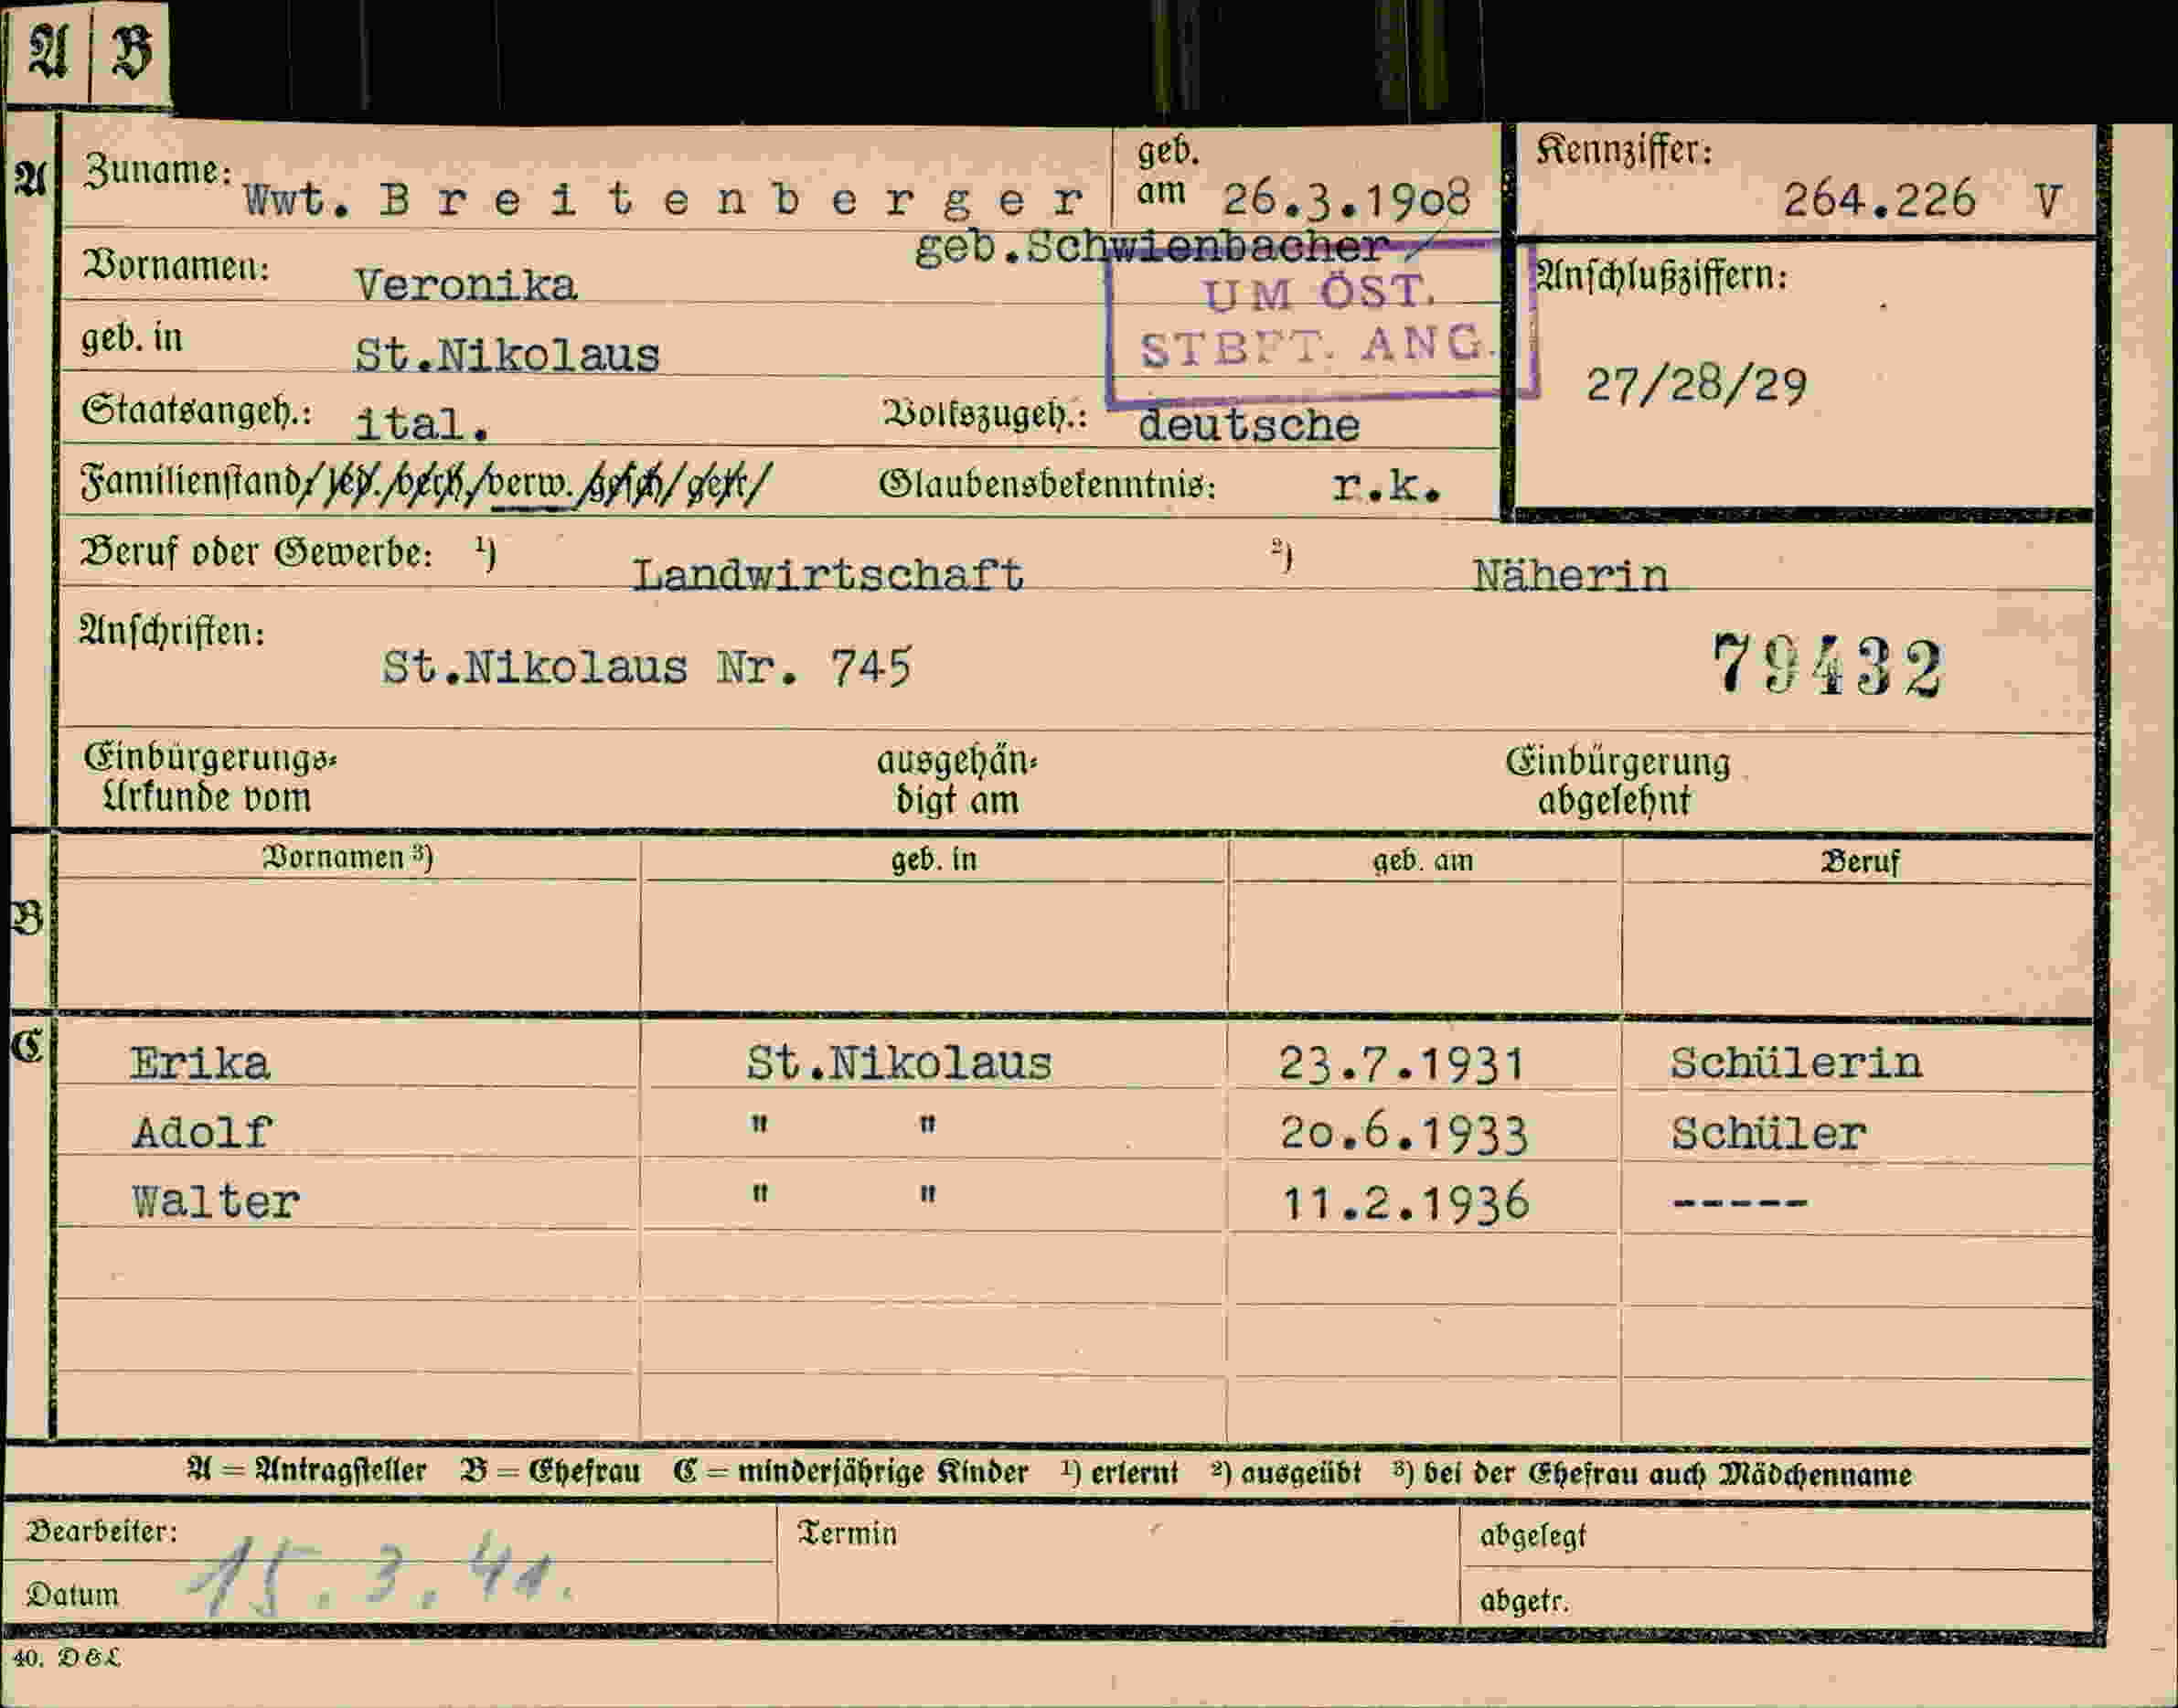 A B
A Zuname: Wwt. Breitenberger geb. am 26.3.1908 Kennziffer: 264.226 V
geb.Schwienbacher
Vornamen: Veronika Anschlußziffern:
UM ÖST.
geb. in St.Nikolaus STBFT. ANG. 27/28/29
Staatsangeh.: ital. Volkszugeh.: deutsche
Familienstand/led./verh./verw./gesch/getr/ Glaubensbekenntnis: r.k.
Beruf oder Gewerbe: 1) Landwirtschaft 2) Näherin
Anschriften: St.Nikolaus Nr. 745 79432
Einbürgerungs- ausgehän- Einbürgerung
Urkunde vom digt am abgelehnt
Vornamen 3) geb. in geb. am Beruf
B
C Erika St.Nikolaus 23.7.1931 Schülerin
Adolf " " 20.6.1933 Schüler
Walter " " 11.2.1936 -----
A = Antragsteller B = Ehefrau C = minderjährige Kinder 1) erlernt 2) ausgeübt 3) bei der Ehefrau auch Mädchenname
Bearbeiter: Termin abgelegt
Datum 15.3.41. abgetr.
40. D&L